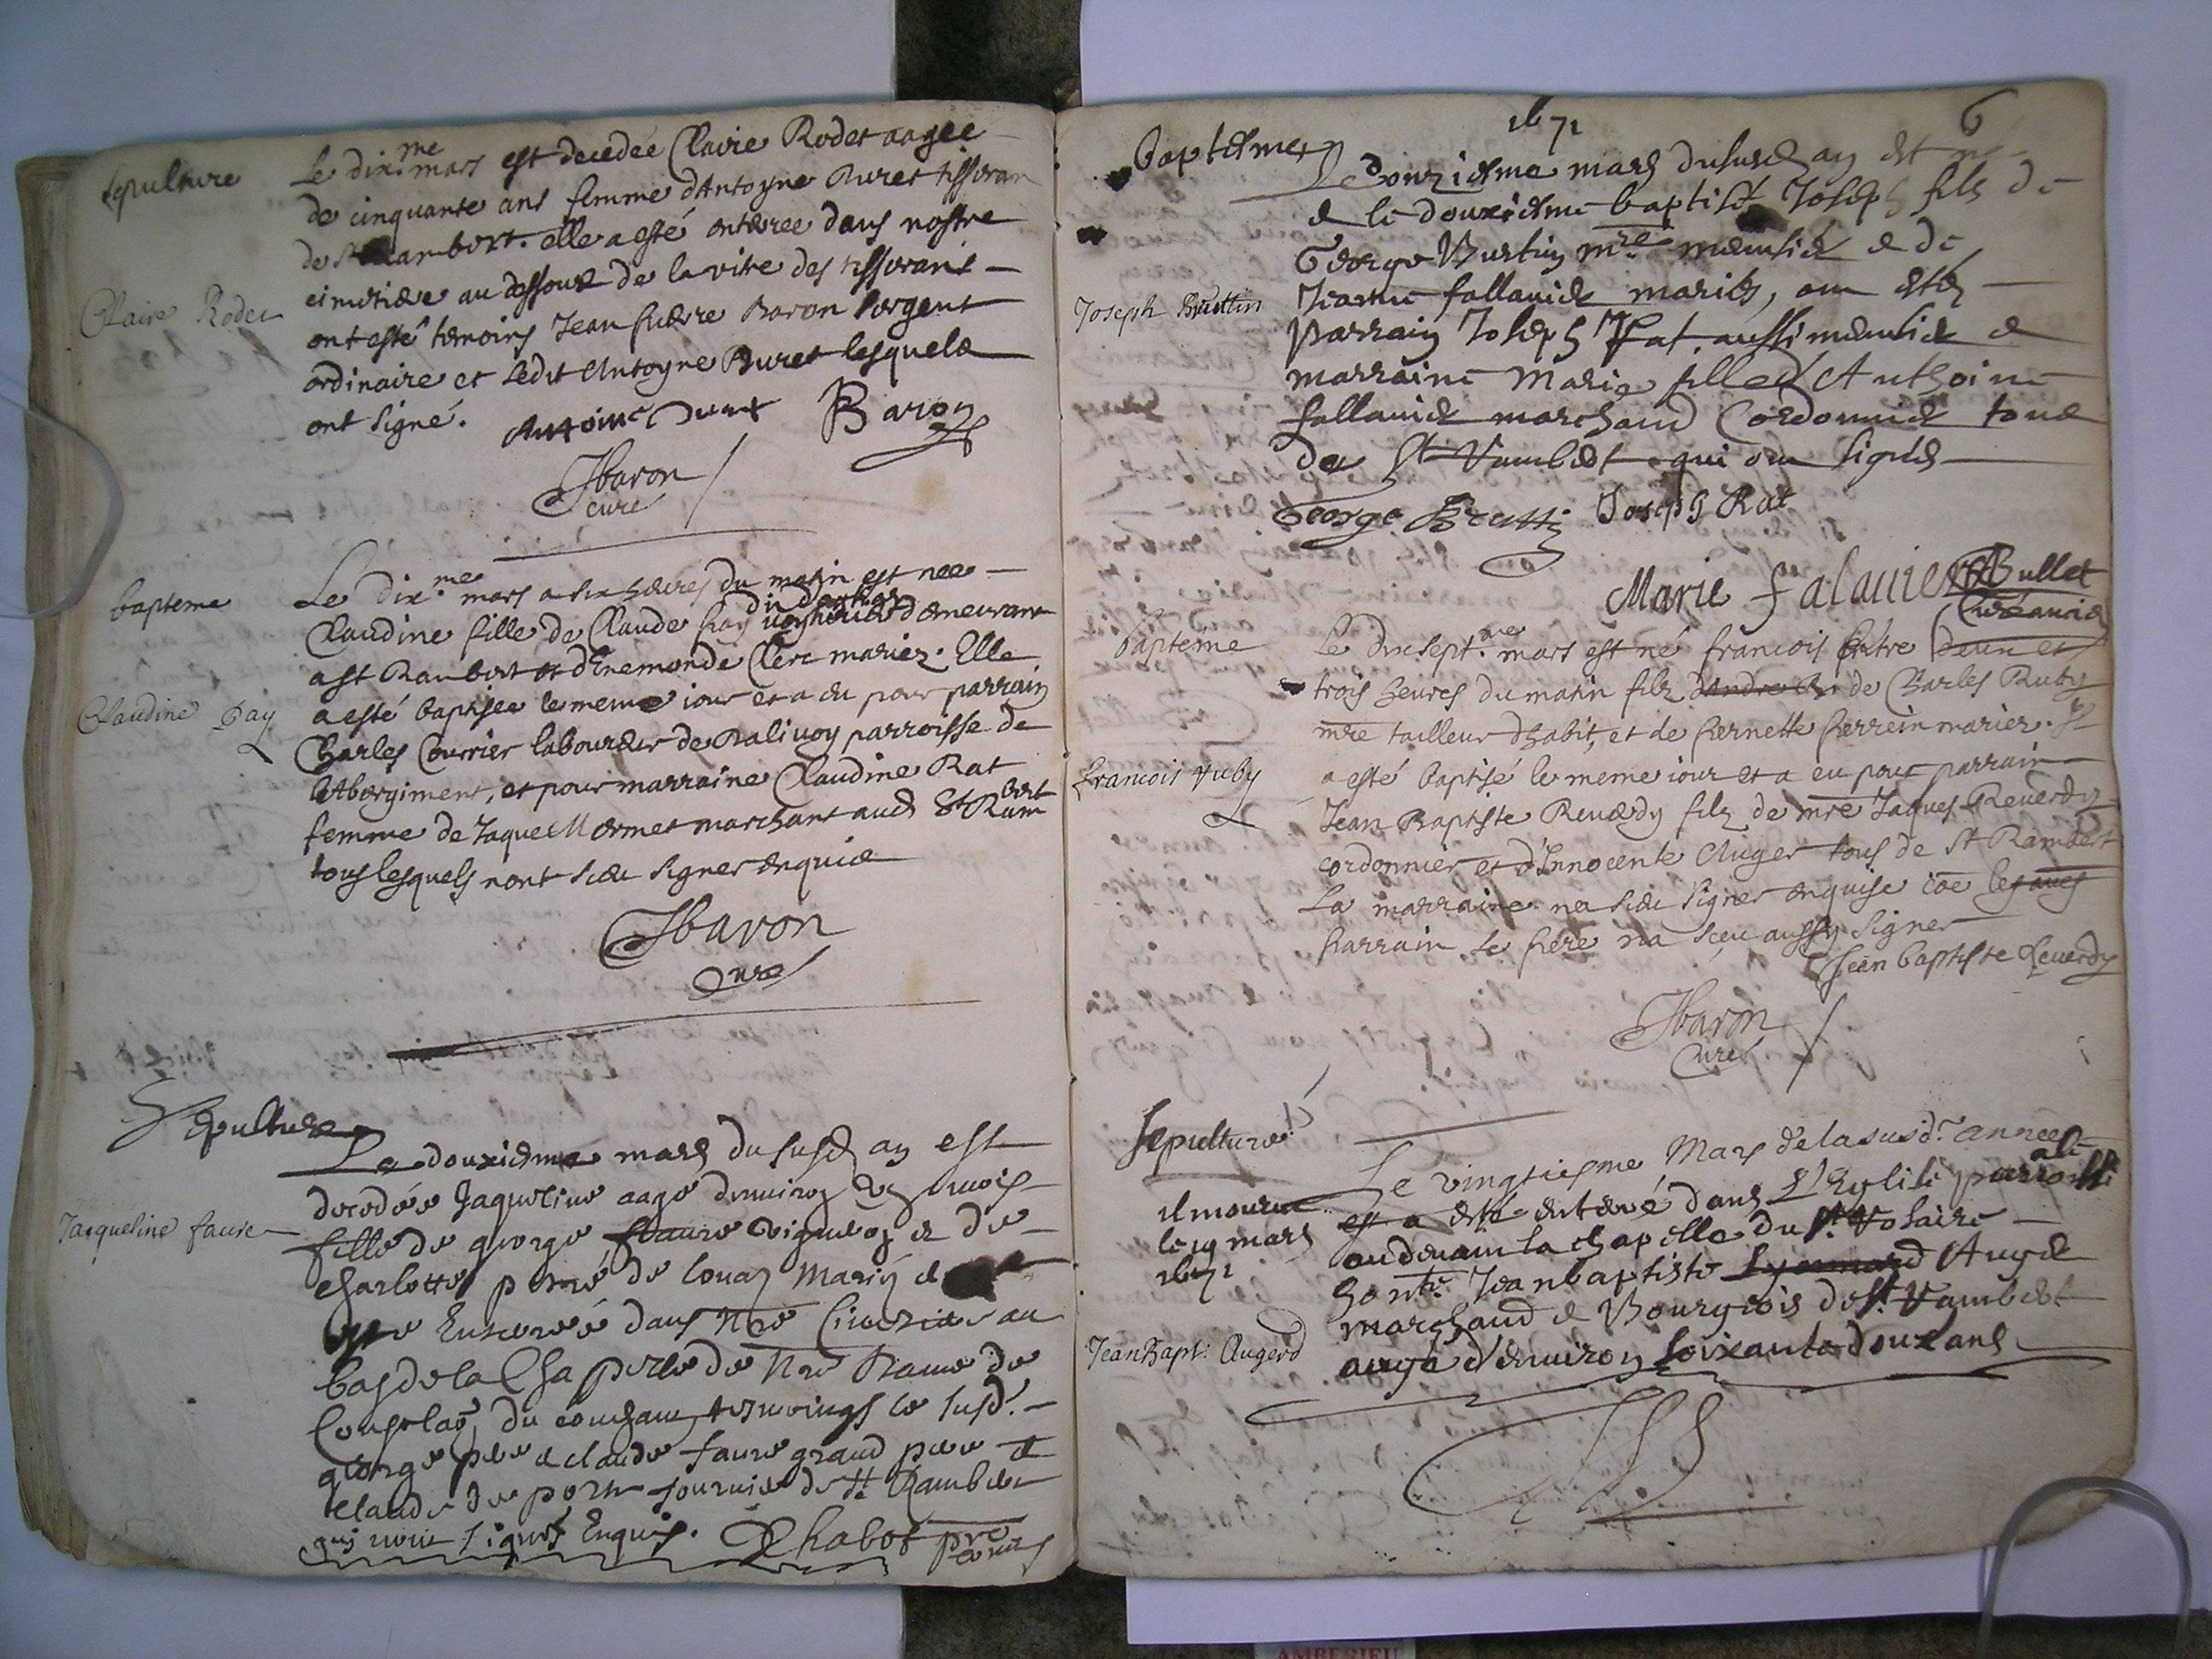 sepulture
Le dix.me mars est decedée Claire Rodet aagee
de cinquante ans femme d'Antoyne Buret tisseran
de St Rambert. elle a esté enterree dans nostre
cimetiere au dessoub de la vitre des tisserans
Claire Rodet
ont esté temoins Jean pierre Baron sergent
ordinaire et ledit Antoyne Buret lesquels
ont signé. Antoine Buret Baron
Jbaron
curé
bapteme
Le dix.me mars a six heures du matin est nee
Claudine fille de Claude pay demeurant
a St Rambert et d'Enemonde Clerc mariez. Elle
a esté baptisee le meme iour et a eu pour parrain
Claudine Pay
Charles Courrier laboureur de Balivoy parroisse de
l'Abergiment, et pour marraine Claudine Rat
femme de Jaque Mermet marchant aud St Rambert
tous lesquels nont sceu signer enquis
Jbaron
Curé
Sepulture
Le douxiesme mars du susd an est
decedée Jaqueline aagé denviron mois
Jacqueline faure
fille de george faure vigneron et de
Charlotte de mariés et
Enterreé dans nre Cimetiere au
bas de la Chapelle de Nre Dame de
Consolaõ, du couchant tesmoings le susd.
george pere et claude faure grand pere et
Claude de St Rambert
qui nont signés Enquis. Chabot pre
1671
6
Baptesme
Le onziesme mars dususd an est né
et le douxiesme baptisé Joseph fils de
George Burtin mre menusier et de
Jeanne fallavier mariés, ont estés
Joseph Bruttin
parrain Joseph Rat aussi menusier et
marraine Marie fille d'Anthoine
fallavier marchand Cordonnier tous
de St Rambert qui ont signés
George Brutti Joseph Rat
Marie falavier Bullet
Curé ancien
bapteme
Le dixsept.me mars est né francois entre deux et
trois heures du matin filz d'Andre de Charles Ruby
mre tailleur dhabit, et de pernette perrein mariez. Il
francois ruby
a esté baptisé le meme iour et a eu pour parrain
Jean Baptiste Reverdy filz de mre Jaques Reverdy
cordonnier et d'Innocente Auger tous de St Rambert
La marraine na sceu signer enquise
parrain. Le pere na sceu aussy signer
Jean baptiste Reverdy
Jbaron
Curé
sepulture
Le vingtiesme Mars de la susd.e annee
il mourut
le 19 mars
1671
est a esté enterré dans L'Eglise parroissiale
au devant la chapelle du St Rosaire
hon.te Jean baptiste Auger
marchand et Bourgeois de St Rambert
Jean Bapt. Augerd
augé d'environ soixante doux ans